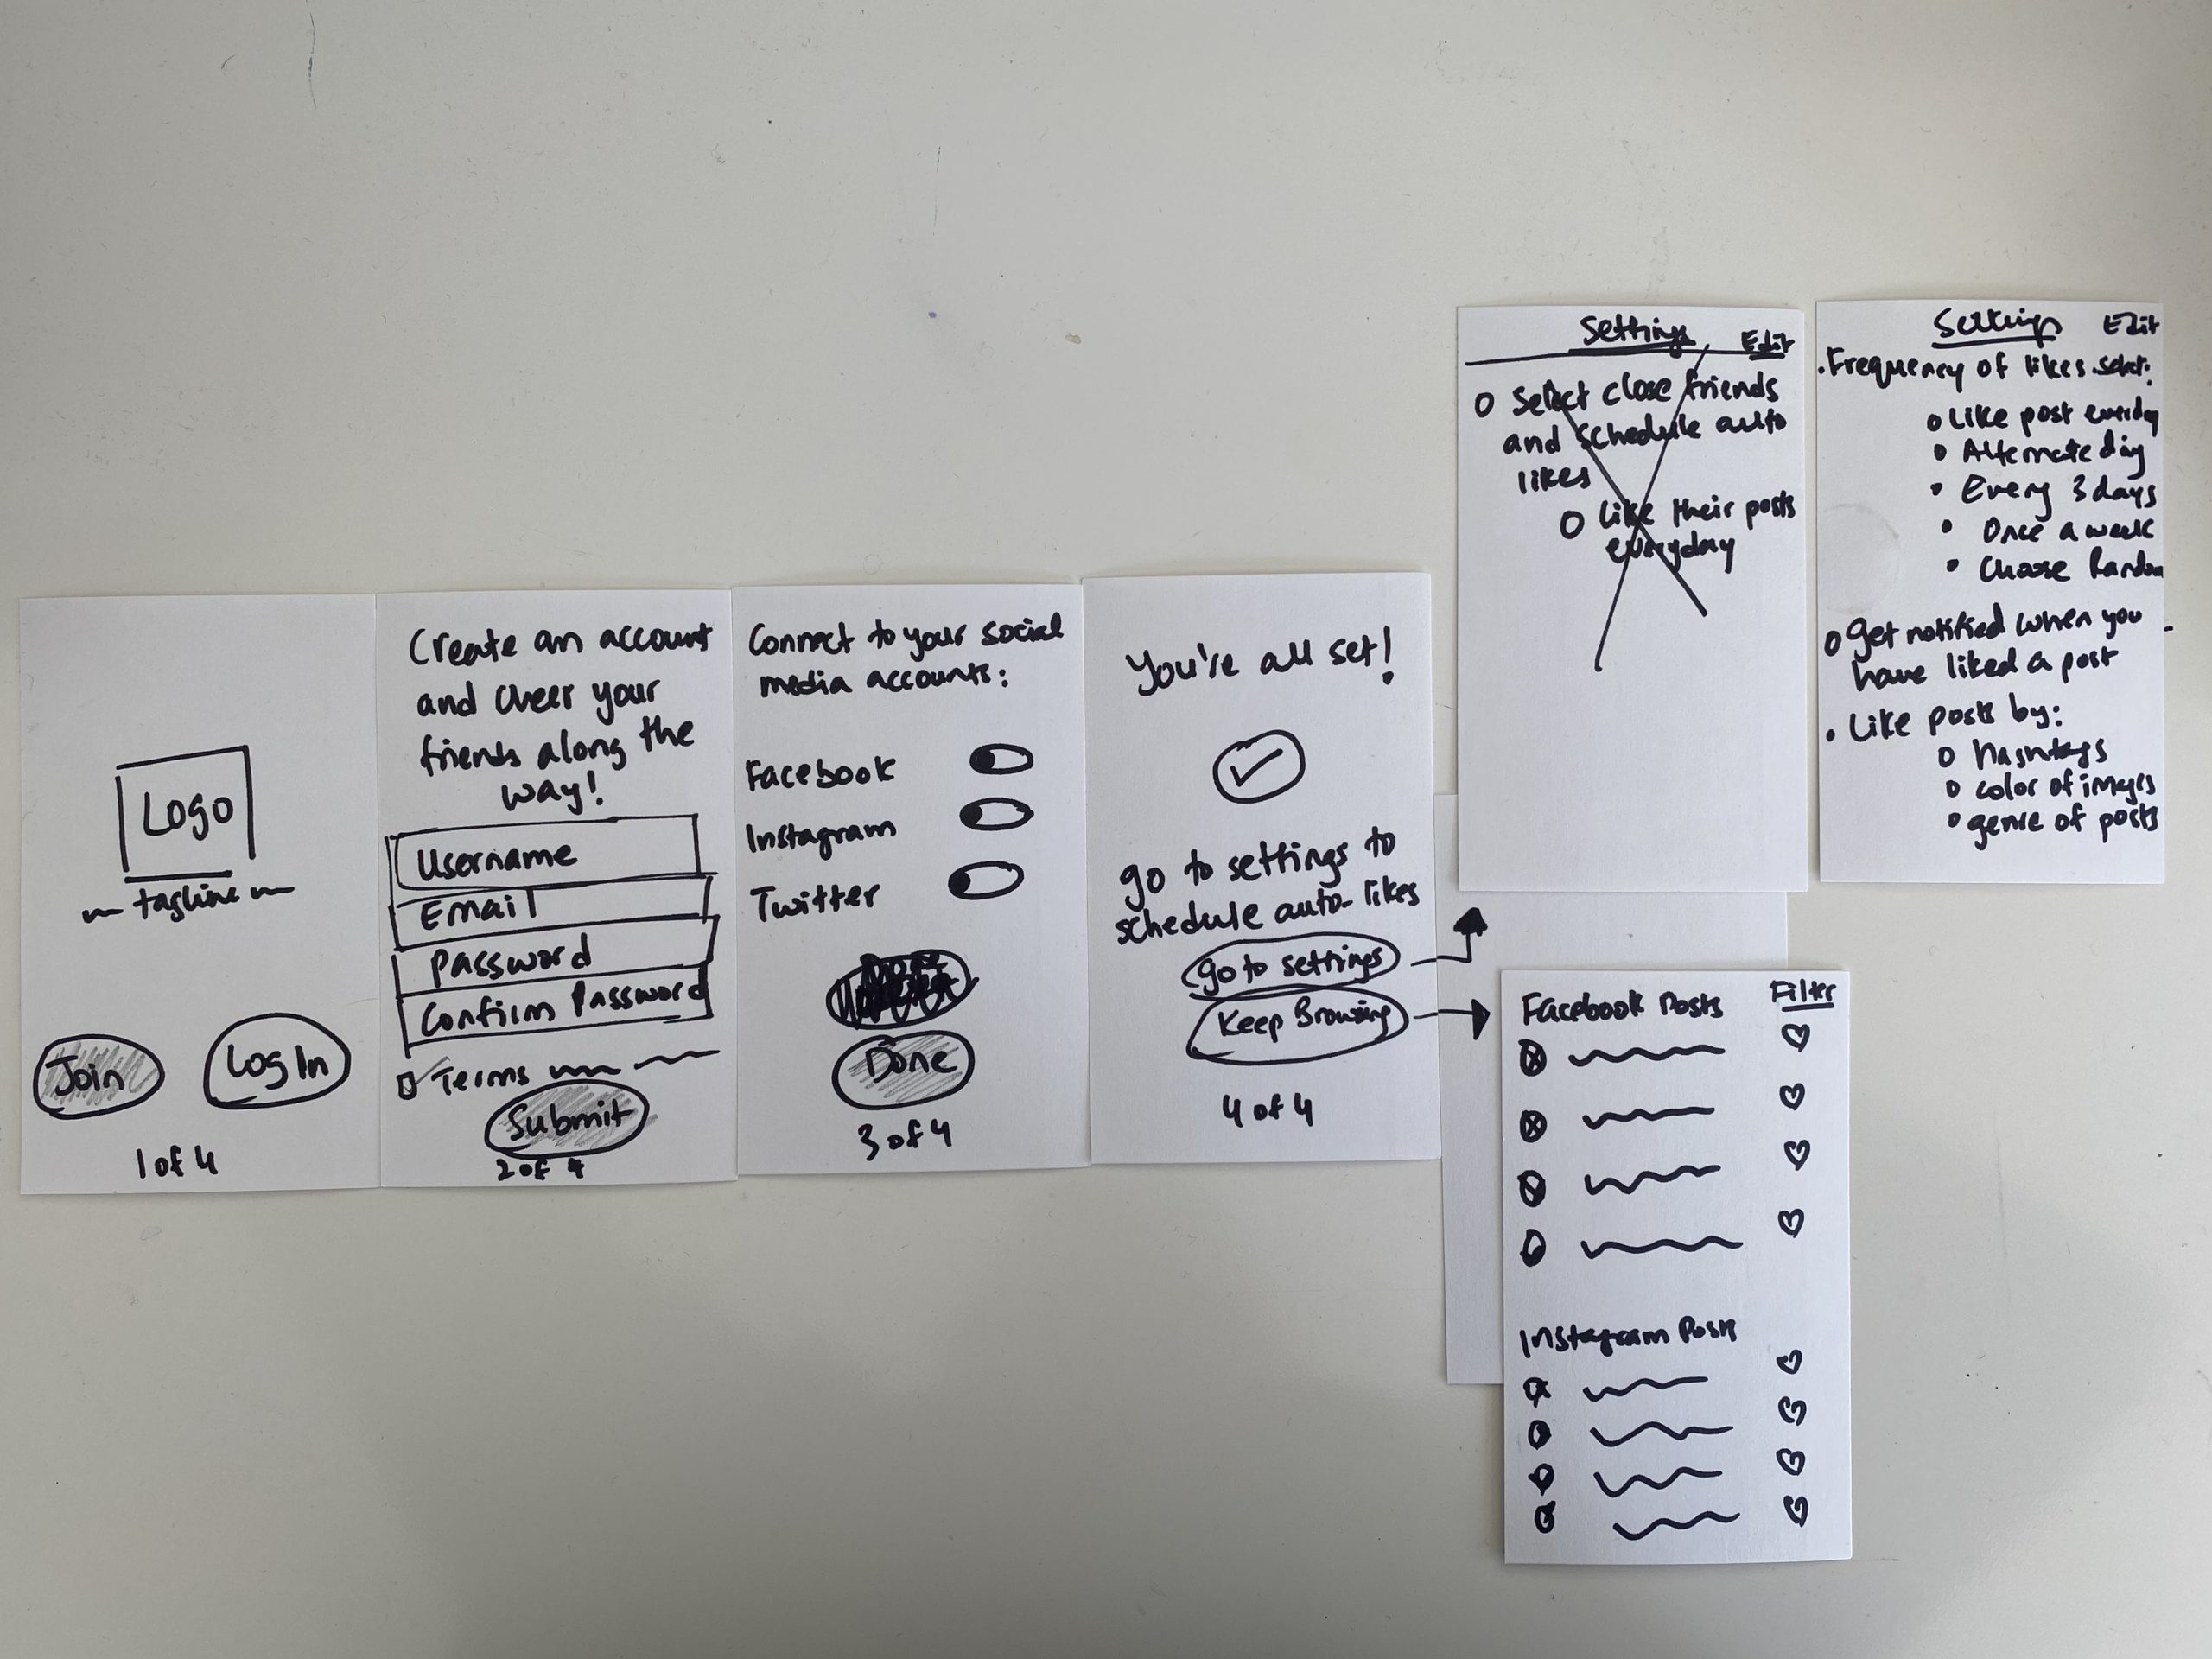 Logo
tagline
Join
Log In
1 of 4
Create an account
and cheer your
friends along the
way!
Username
Email
Password
Confirm Password
Terms
Submit
2 of 4
Connect to your social
media accounts:
Facebook
Instagram
Twitter
Done
3 of 4
You're all set!
go to settings to
schedule auto-likes
go to settings
Keep Browsing
4 of 4
Settings
Edit
Select close friends
and schedule auto
likes
Like their posts
everyday
Settings
Edit
Frequency of likes select:
Like post everyday
Alternate day
Every 3 days
Once a week
Choose Random
Get notified when you
have liked a post
Like posts by:
hashtags
color of images
genre of posts
Facebook Posts
Filter
Instagram Posts